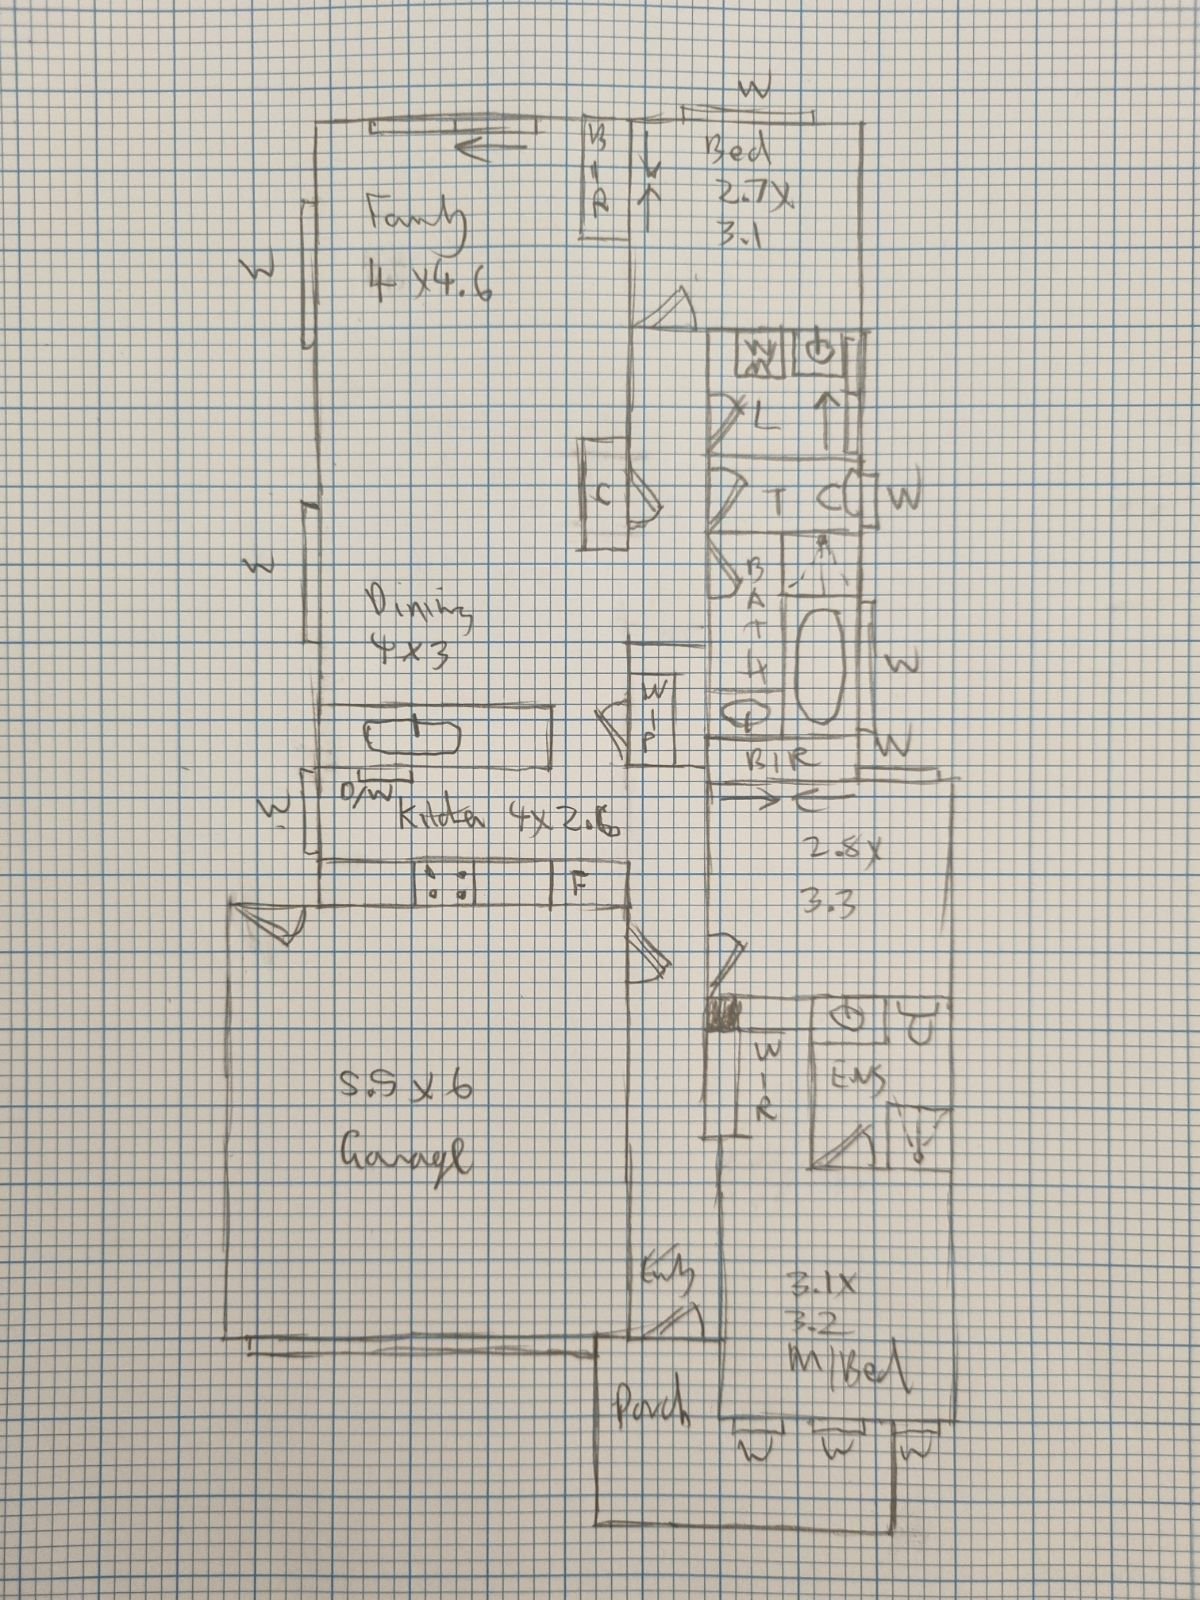 W
Bed
2.7X
3.1
B
I
R
Family
4 X4.6
W
L
T
W
C
W
Dining
4x3
B
A
T
H
W
W
I
P
B/R
W
D/W
Kitchen 4x2.6
W
F
2.8X
3.3
W
I
R
ENS
5.5 X 6
Garage
Entry
3.1X
3.2
M/Bed
Porch
W
W
W